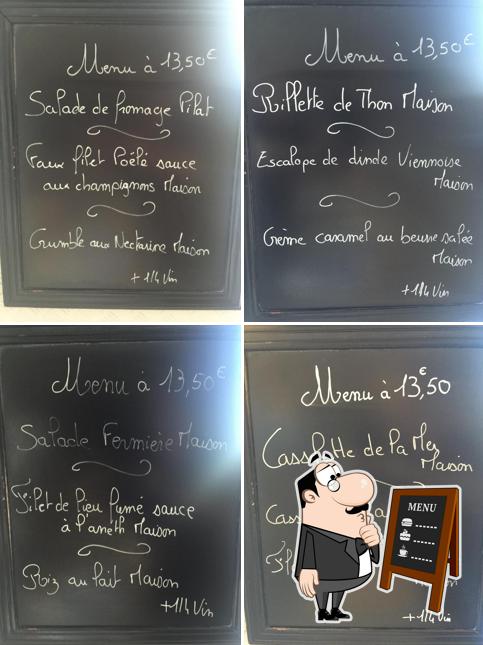 Menu à 13,50€
Salade de fromage Pilat
Faux filet Poêlé sauce
aux champignons Maison
Crumble aux Nectarine Maison
+ 1/4 Vin
Menu à 13,50€
Rillette de Thon Maison
Escalope de dinde Viennoise
Maison
Crème caramel au beurre salée
Maison
+ 1/4 Vin
Menu à 13,50€
Salade Fermière Maison
Filet de Lieu fumé sauce
à l'aneth Maison
Riz au lait Maison
+ 1/4 Vin
Menu à 13,50€
Cassolette de la Mer
Maison
MENU
+ 1/4 Vin